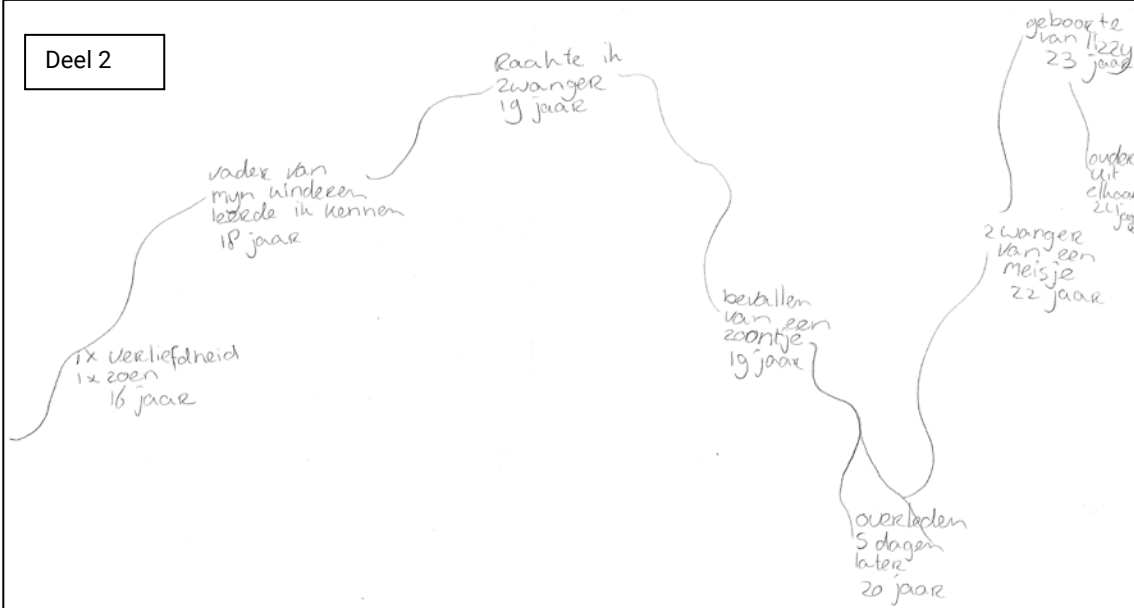 Deel 2
1x verliefdheid
1x zoen
16 jaar
vader van
mijn kinderen
leerde ik kennen
18 jaar
Raakte ik
zwanger
19 jaar
bevallen
van een
zoontje
19 jaar
overleden
5 dagen
later
20 jaar
zwanger
van een
meisje
22 jaar
geboorte
van
23 jaar
ouder
uit